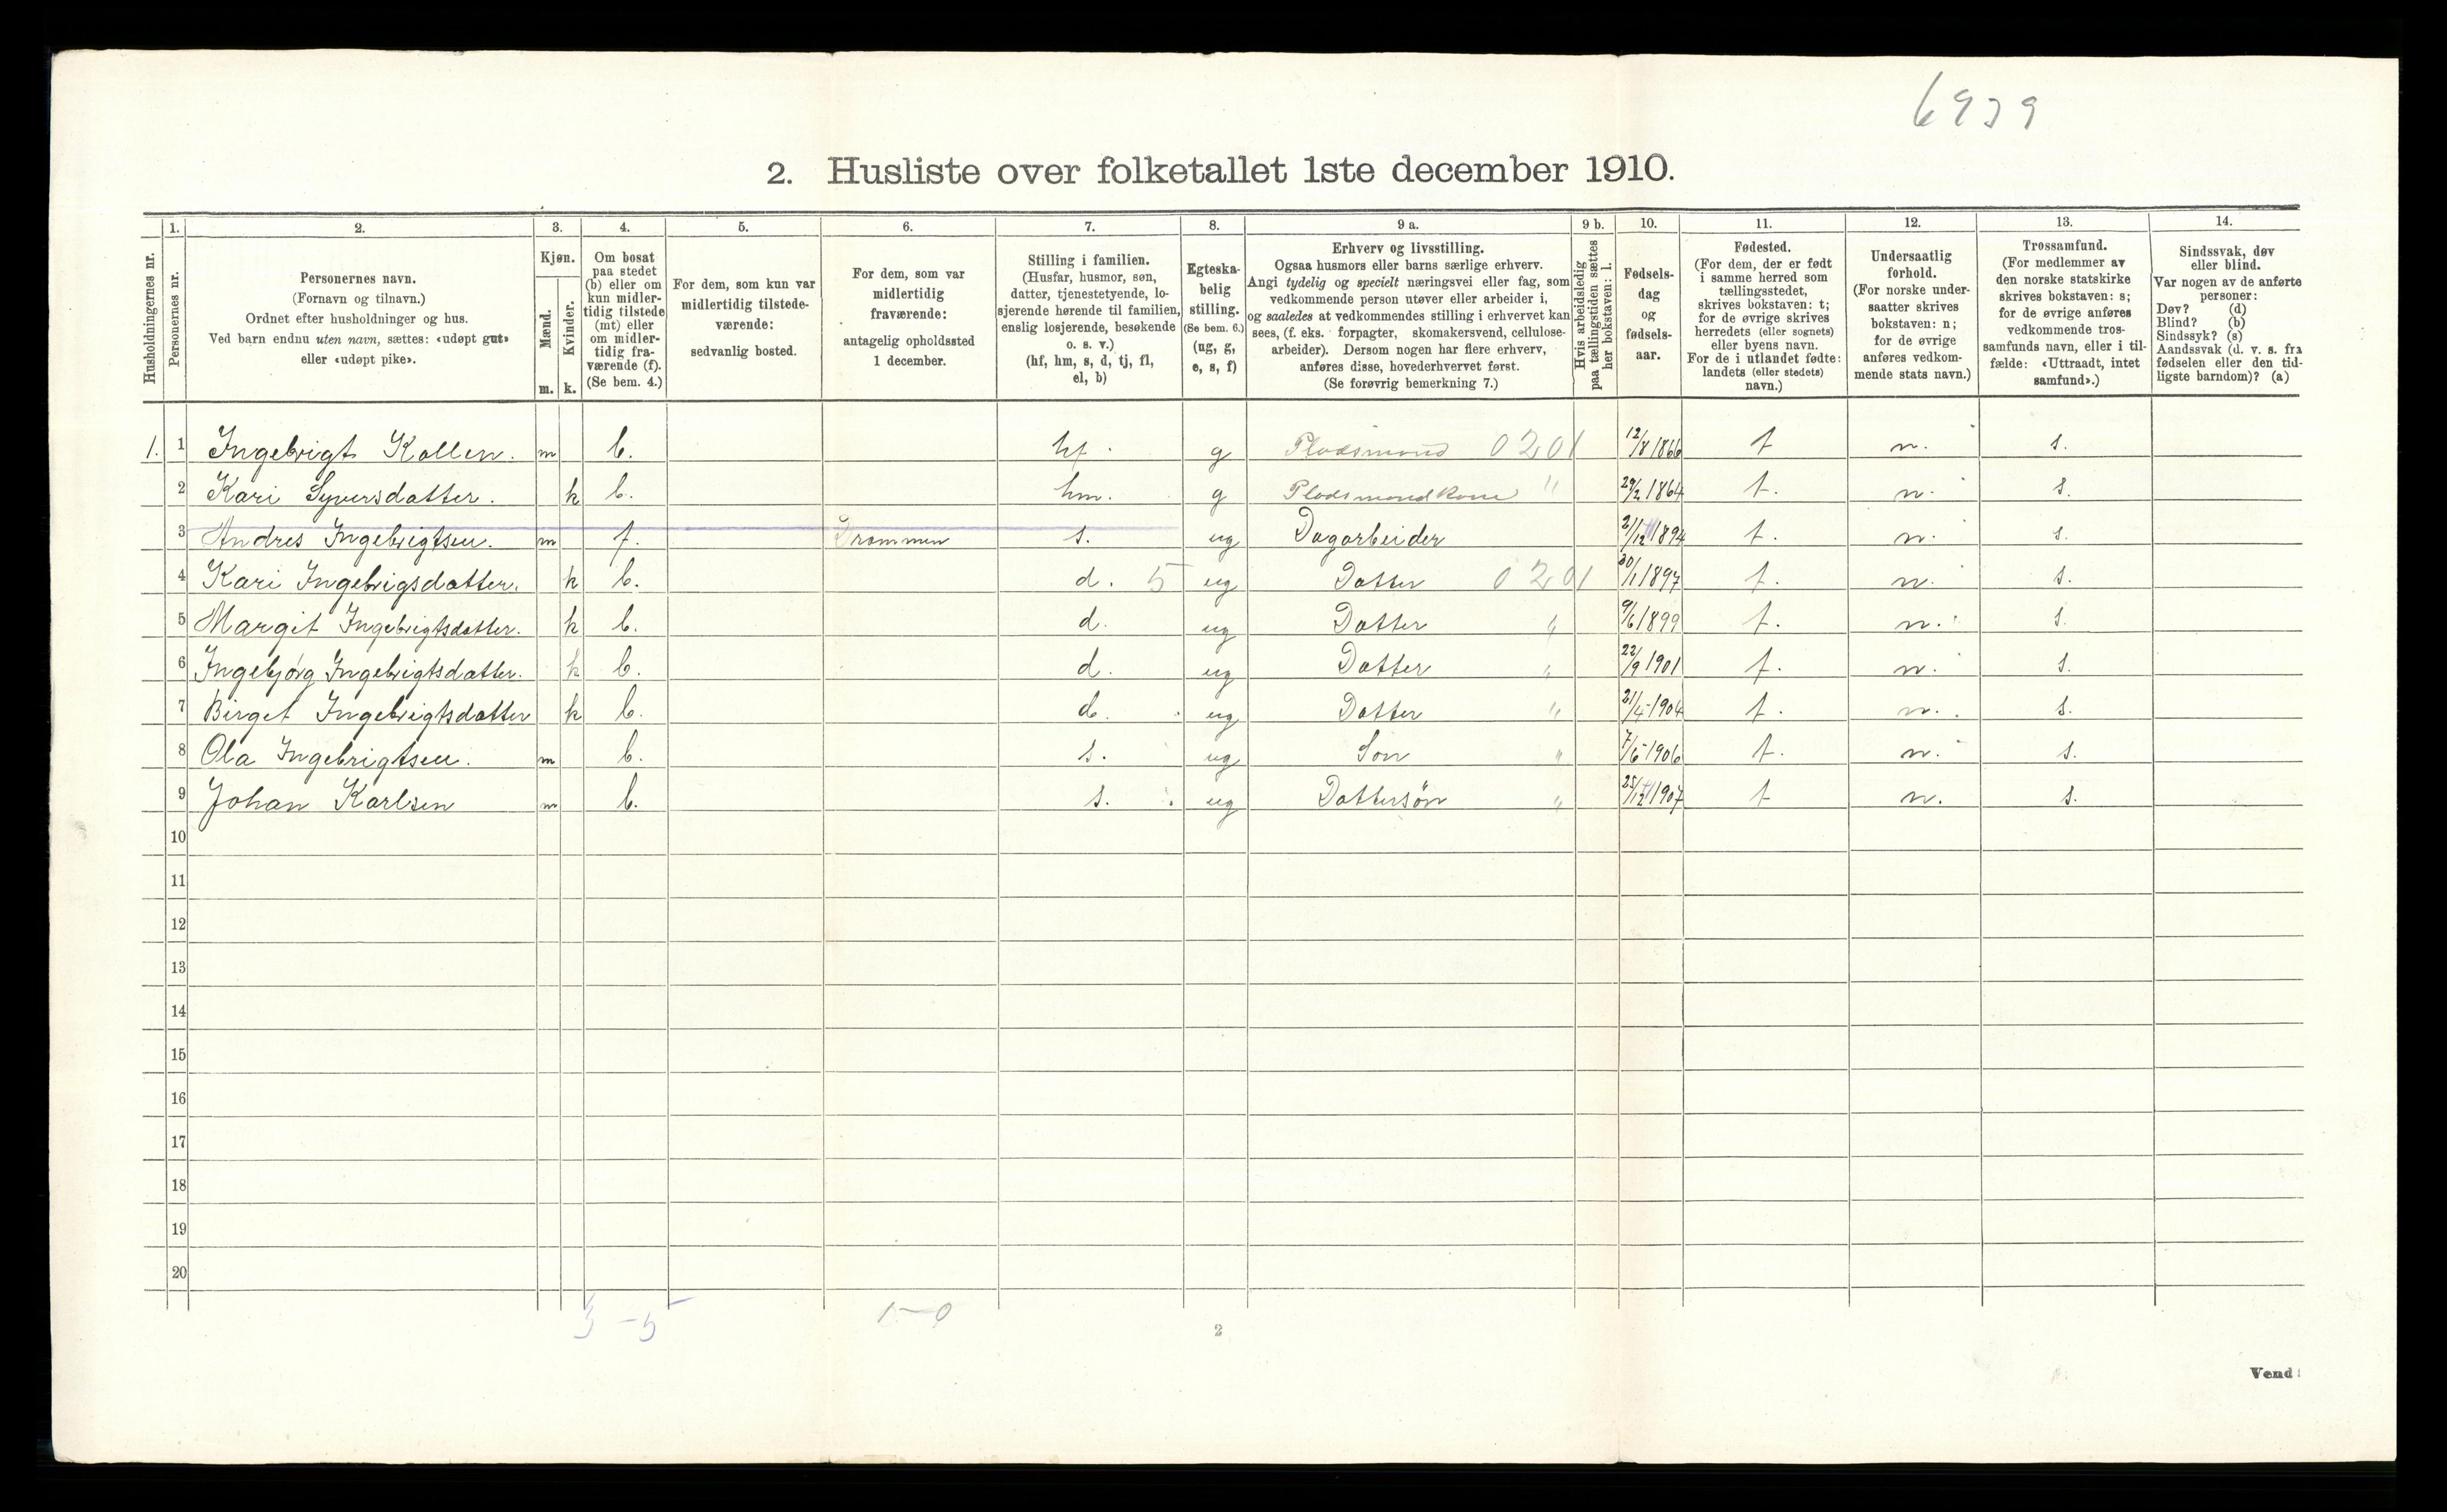 6939
2. Husliste over folketallet 1ste december 1910.
Husholdningernes nr.
1.
Personernes nr.
2.
Personernes navn.
(Fornavn og tilnavn.)
Ordnet efter husholdninger og hus.
Ved barn endnu uten navn, sættes: «udøpt gut»
eller «udøpt pike».
3.
Kjøn.
Mænd.
m.
Kvinder.
k.
4.
Om bosat
paa stedet
(b) eller om
kun midler-
tidig tilstede
(mt) eller
om midler-
tidig fra-
værende (f).
(Se bem. 4.)
5.
For dem, som kun var
midlertidig tilstede-
værende:
sedvanlig bosted.
6.
For dem, som var
midlertidig
fraværende:
antagelig opholdssted
1 december.
7.
Stilling i familien.
(Husfar, husmor, søn,
datter, tjenestetyende, lo-
sjerende hørende til familien,
enslig losjerende, besøkende
o. s. v.)
(hf, hm, s, d, tj, fl,
el, b)
8.
Egteska-
belig
stilling.
(Se bem. 6.)
(ug, g,
e, s, f)
9 a.
Erhverv og livsstilling.
Ogsaa husmors eller barns særlige erhverv.
Angi tydelig og specielt næringsvei eller fag, som
vedkommende person utøver eller arbeider i,
og saaledes at vedkommendes stilling i erhvervet kan
sees, (f. eks. forpagter, skomakersvend, cellulose-
arbeider). Dersom nogen har flere erhverv,
anføres disse, hovederhvervet først.
(Se forøvrig bemerkning 7.)
9 b.
Hvis arbeidsledig
paa tællingstiden sættes
her bokstaven: l.
10.
Fødsels-
dag
og
fødsels-
aar.
11.
Fødested.
(For dem, der er født
i samme herred som
tællingsstedet,
skrives bokstaven: t;
for de øvrige skrives
herredets (eller sognets)
eller byens navn.
For de i utlandet fødte:
landets (eller stedets)
navn.)
12.
Undersaatlig
forhold.
(For norske under-
saatter skrives
bokstaven: n;
for de øvrige
anføres vedkom-
mende stats navn.)
13.
Trossamfund.
(For medlemmer av
den norske statskirke
skrives bokstaven: s;
for de øvrige anføres
vedkommende tros-
samfunds navn, eller i til-
fælde: «Uttraadt, intet
samfund».)
14.
Sindssvak, døv
eller blind.
Var nogen av de anførte
personer:
Døv? (d)
Blind? (b)
Sindssyk? (s)
Aandssvak (d. v. s. fra
fødselen eller den tid-
ligste barndom)? (a)
1. 1 Ingebrigt Kollen. m b. hf. g Pladsmand 0201 12/8 1866 t n. s.
2 Kari Syversdatter. k b. hm. g Pladsmandkone " 29/2 1864 t. n. s.
3 Andres Ingebrigtsen. m f. Drammen s. ug Dagarbeider 21/12 1894 t. n. s.
4 Kari Ingebrigsdatter. k b. d. 5 ug Datter 0201 30/1 1897 t. n. s.
5 Margit Ingebrigtsdatter. k b. d. ug Datter " 9/6 1899 t. n. s.
6 Ingebjørg Ingebrigtsdatter. k b. d. ug Datter " 22/9 1901 t. n. s.
7 Birget Ingebrigtsdatter k b. d. ug Datter " 21/4 1904 t. n. s.
8 Ola Ingebrigtsen. m b. s. ug Søn " 7/6 1906 t. n. s.
9 Johan Karlsen m b. s. ug Dattersøn " 25/12 1907 t n. s.
10
11
12
13
14
15
16
17
18
19
20
3 - 5 1 - 0
2
Vend!